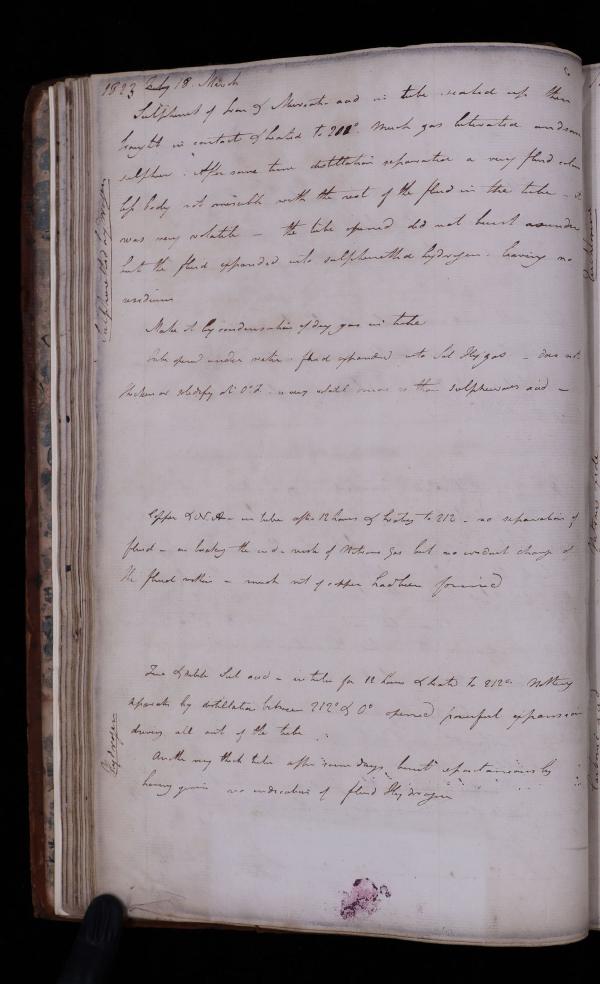 1823 18. March
Sulphuret of Iron & Muriatic acid in tube sealed up then
brought in contact & heated to 212°. Much gas liberated and some
sulphur. After some time distillation separated a very fluid
body not miscible with the rest of the fluid in the tube - it
was very volatile - the tube opened did not burst asunder
but the fluid expanded into sulphuretted hydrogen. leaving no
residuum
Sulphuretted hydrogen
Made it by condensation of dry gas in tube
tube opened under water. fluid expanded into Sul Hy gas - does not
thicken or solidify at 0° F. sulphureous acid -
Copper & N. A - in tube after 12 hours & heating to 212 - no separation of
fluid - on breaking the end a rush of Nitrous gas but no evident change of
the fluid within - much nit of copper had been formed
Zinc & dilute Sul acid - in tube for 12 hours & heated to 212°. Nothing
separated by distillation between 212° & 0° opened powerful expansion
driving all out of the tube
Hydrogen
Another very thick tube after some days burst spontaneously
having given no indication of fluid Hydrogen